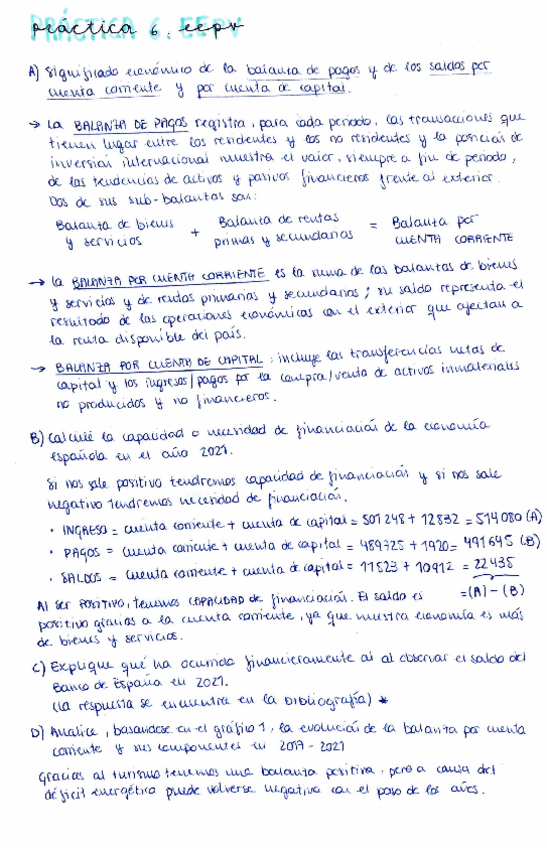 práctica 6. eepv
A) Significado económico de la balanza de pagos y de los saldos por
cuenta corriente y por cuenta de capital.
→ La BALANZA DE PAGOS registra, para cada periodo, las transacciones que
tienen lugar entre los residentes y los no residentes y la posición de
inversión internacional muestra el valor, siempre a fin de periodo,
de las tendencias de activos y pasivos financieros frente al exterior.
Dos de sus sub-balanzas son:
Balanza de bienes y servicios + Balanza de rentas primas y secundarias = Balanza por CUENTA CORRIENTE
→ La BALANZA POR CUENTA CORRIENTE es la suma de las balanzas de bienes
y servicios y de rentas primarias y secundarias; su saldo representa el
resultado de las operaciones económicas con el exterior que afectan a
la renta disponible del país.
→ BALANZA POR CUENTA DE CAPITAL: incluye las transferencias netas de
capital y los ingresos/pagos por la compra/venta de activos inmateriales
no producidos y no financieros.
B) Calcule la capacidad o necesidad de financiación de la economía
española en el año 2021.
Si nos sale positivo tendremos capacidad de financiación y si nos sale
negativo tendremos necesidad de financiación.
· INGRESO = cuenta corriente + cuenta de capital = 501248 + 12832 = 514080 (A)
· PAGOS = cuenta corriente + cuenta de capital = 489725 + 1920 = 491645 (B)
· SALDOS = cuenta corriente + cuenta de capital = 11523 + 10912 = 22435
=(A) - (B)
Al ser POSITIVO, tenemos CAPACIDAD de financiación. El saldo es
positivo gracias a la cuenta corriente, ya que nuestra economía es más
de bienes y servicios.
C) Explique qué ha ocurrido financieramente al al observar el saldo del
Banco de España en 2021.
(la respuesta se encuentra en la bibliografía) *
D) Analice, basandose en el gráfico 1, la evolución de la balanza por cuenta
corriente y sus componentes en 2017 - 2021
Gracias al turismo tenemos una balanza positiva, pero a causa del
déficit energético puede volverse negativa con el paso de los años.